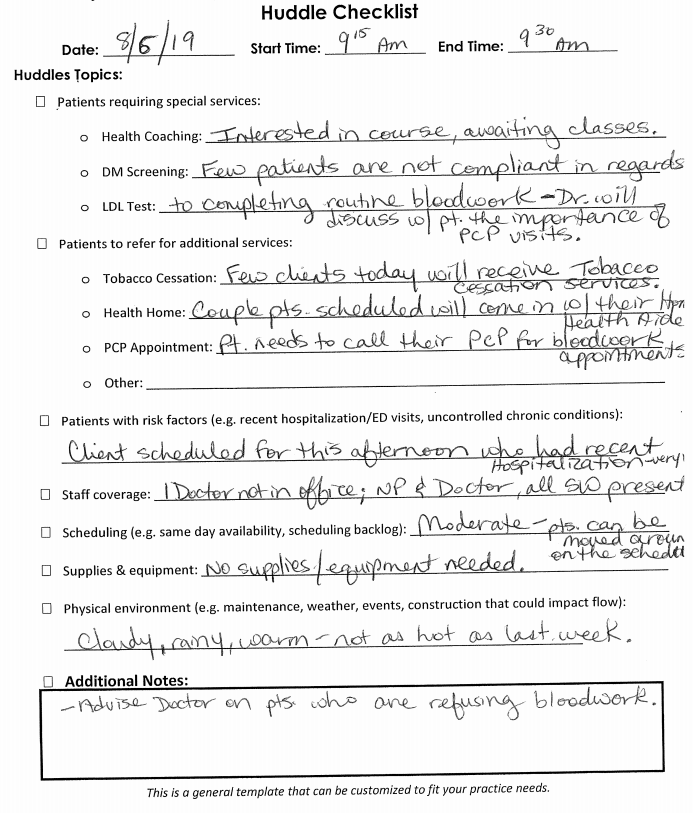 Huddle Checklist
Date: 8/6/19 Start Time: 9 15 Am End Time: 9 30 Am
Huddles Topics:
Patients requiring special services:
Health Coaching: Interested in course, awaiting classes.
DM Screening: Few patients are not compliant in regards
LDL Test: to completing routine bloodwork - Dr. will
discuss w/ pt. the importance of
PCP visits.
Patients to refer for additional services:
Tobacco Cessation: Few clients today will receive Tobacco
Cessation services.
Health Home: Couple pts. scheduled will come in w/ their
Health Aide
PCP Appointment: Pt. needs to call their PCP for bloodwork
appointments
Other:
Patients with risk factors (e.g. recent hospitalization/ED visits, uncontrolled chronic conditions):
Client scheduled for this afternoon who had recent
Hospitalization-very
Staff coverage: 1 Doctor not in office; NP & Doctor, all SW present
Scheduling (e.g. same day availability, scheduling backlog): Moderate - pts. can be
moved aroun
on the schedul
Supplies & equipment: No supplies/equipment needed.
Physical environment (e.g. maintenance, weather, events, construction that could impact flow):
Cloudy, rainy, warm - not as hot as last week.
Additional Notes:
-Advise Doctor on pts. who are refusing bloodwork.
This is a general template that can be customized to fit your practice needs.